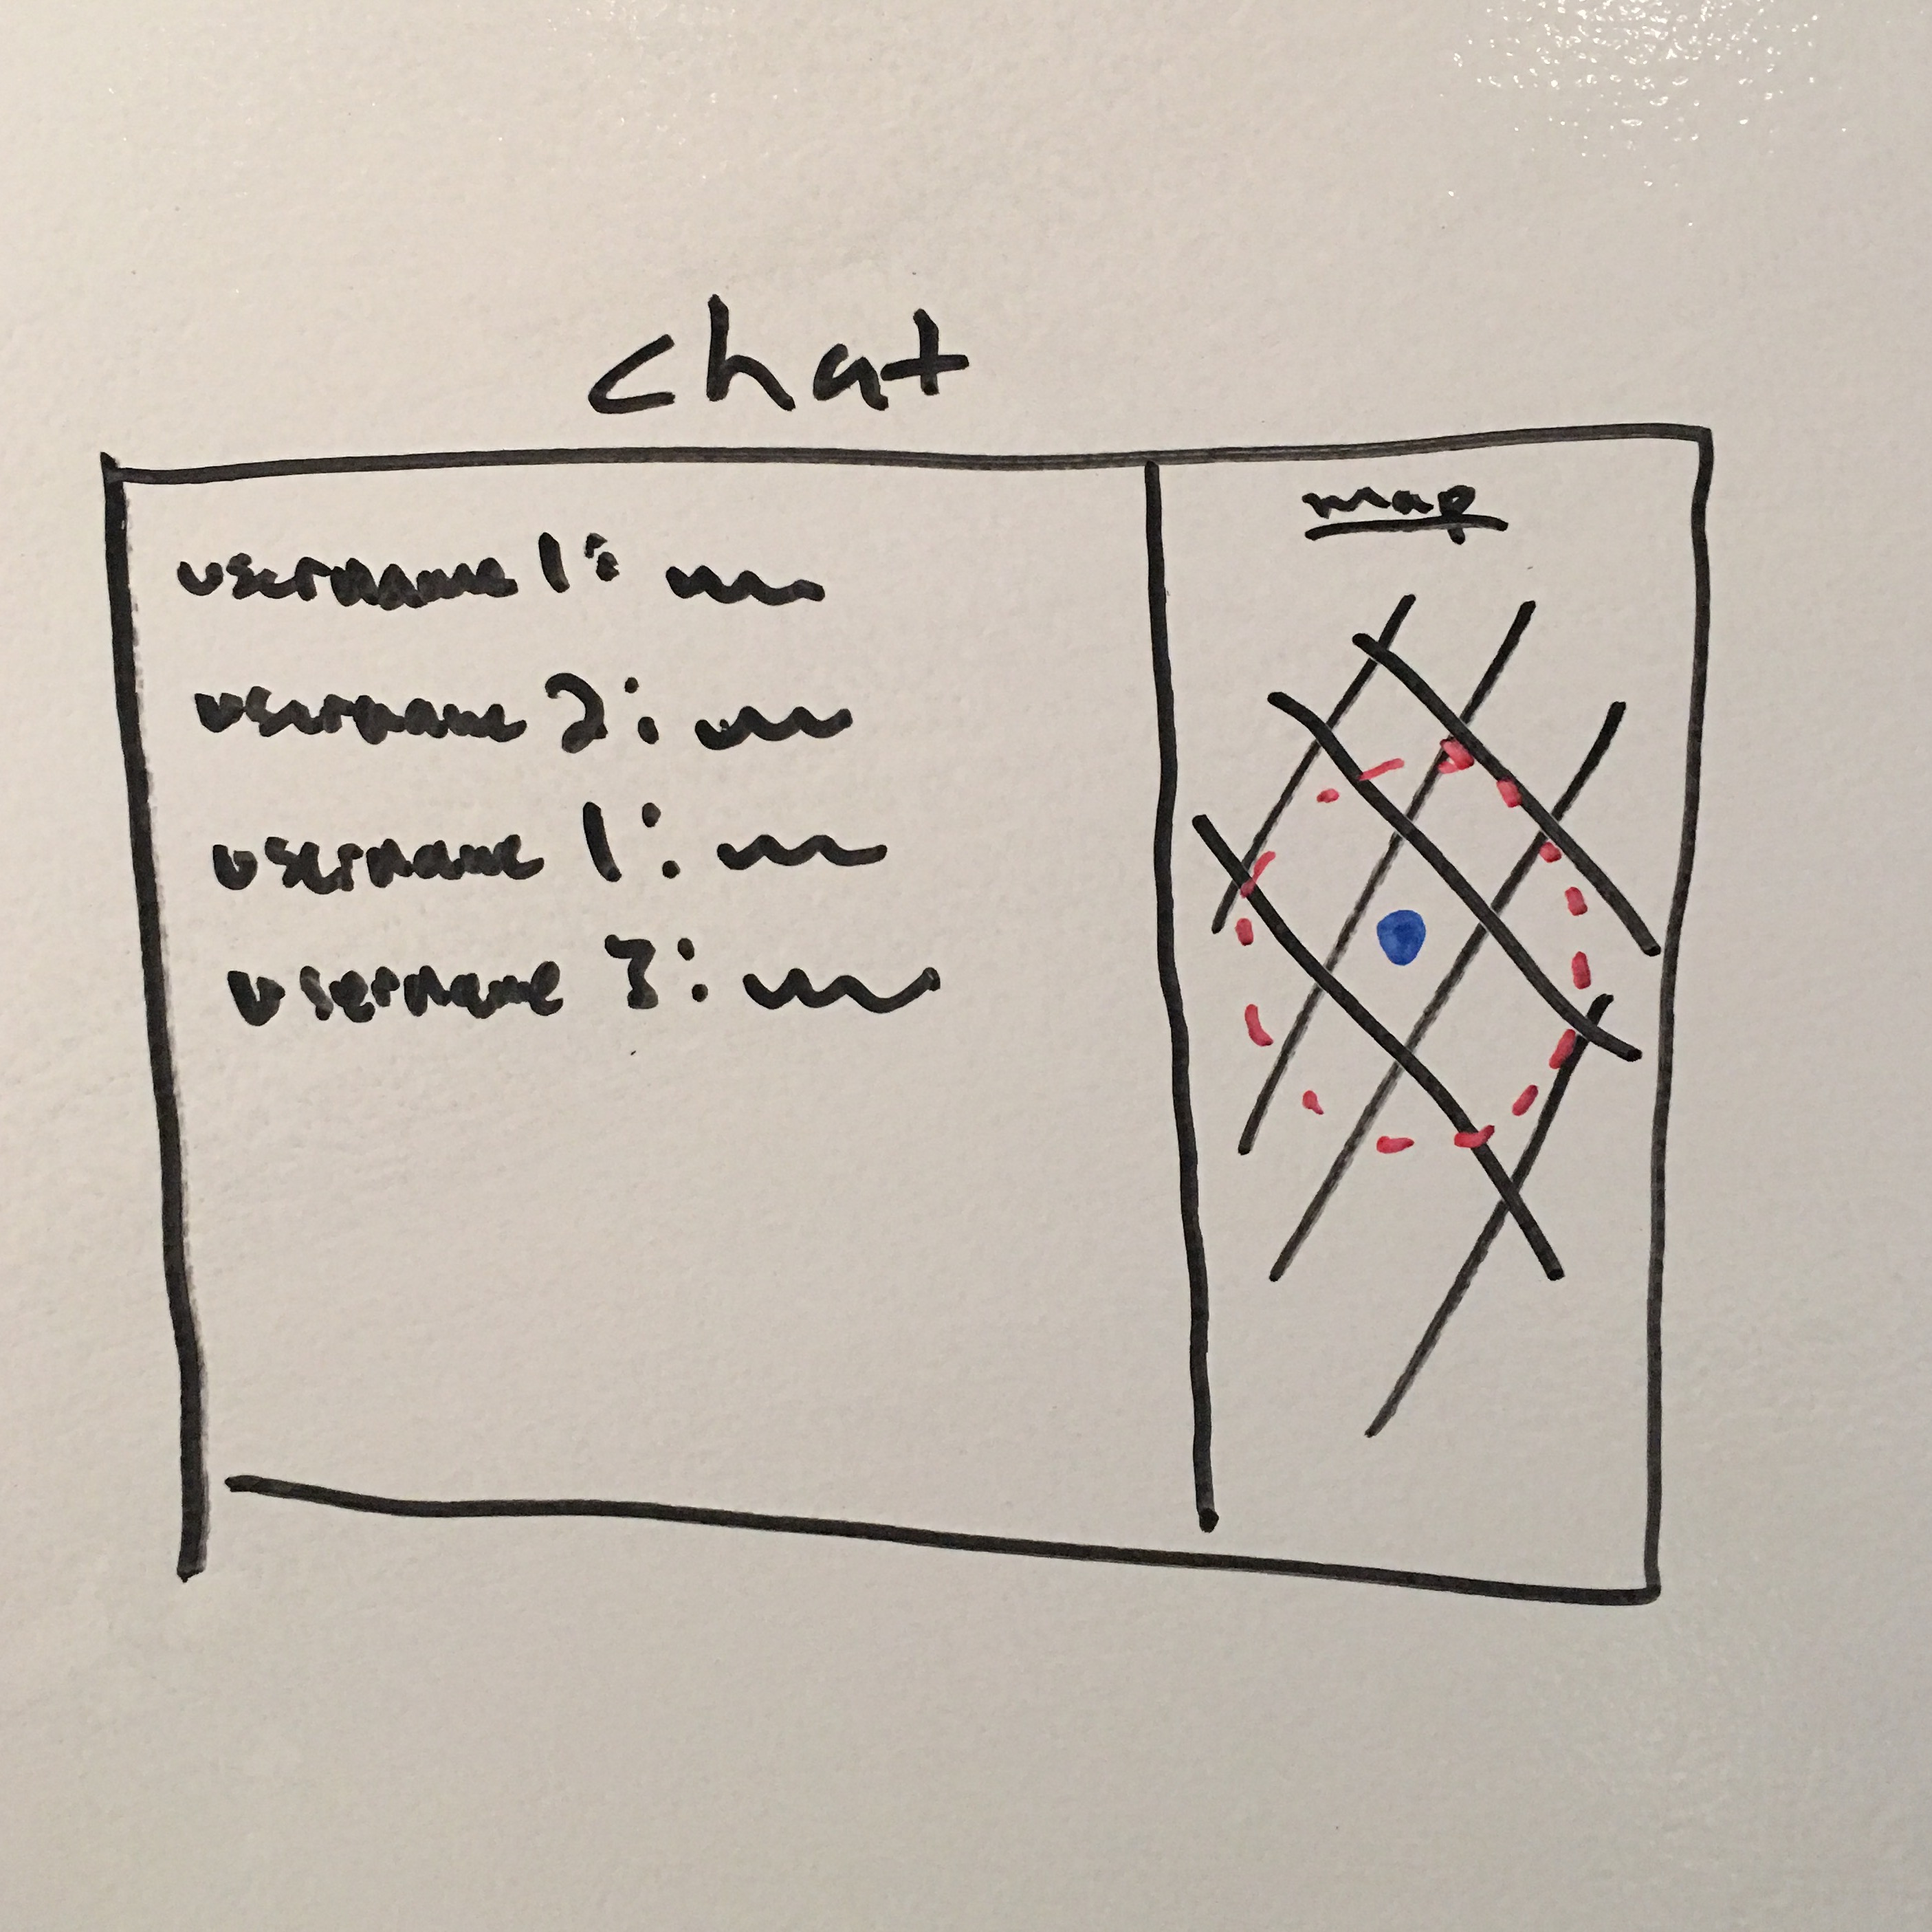 chat
map
username 1:
username 2:
username 1:
username 3: